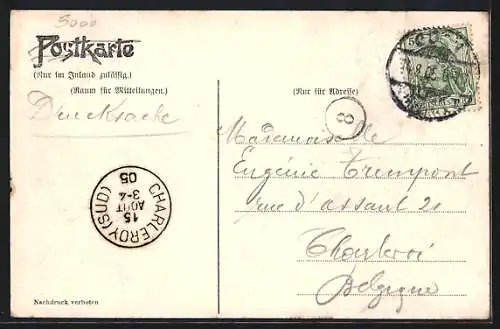 5000
Postkarte
(Nur im Inland zulässig.)
(Raum für Mitteilungen.)
Drucksache
(Nur für Adresse)
8
Mademoiselle
Eugénie Trempont
rue d'assaut 21
Charleroi
Belgique
CHARLEROY (SUD)
15
AOUT
3-4
05
Nachdruck verboten